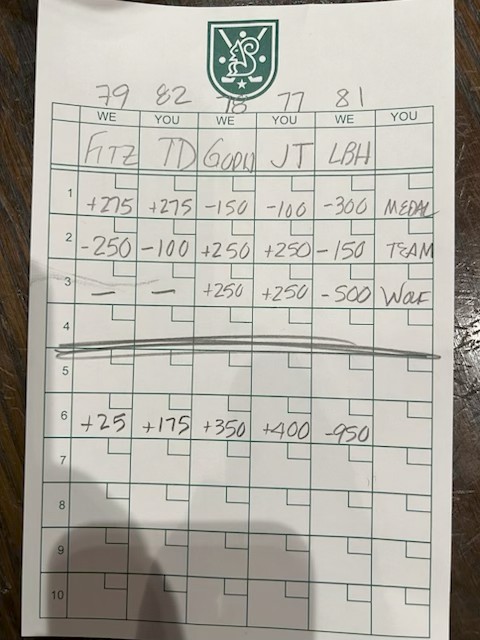 79 82 78 77 81
WE YOU WE YOU WE YOU
FITZ TD GODW JT LBH
1 +275 +275 -150 -100 -300 MEDAL
2 -250 -100 +250 +250 -150 TEAM
3 — — +250 +250 -500 WOLF
4
5
6 +25 +175 +350 +400 -950
7
8
9
10